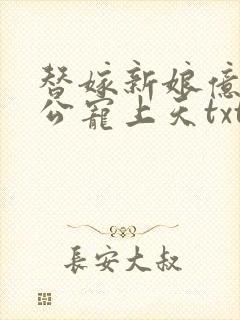 替嫁新娘億
公寵上天txt
長安大叔